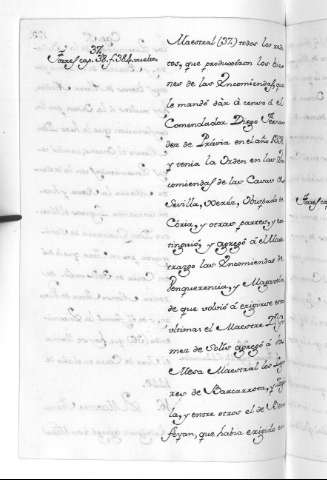 37.
Torres cap. 38. f. 384. vuelta.
Maestral (37) todos los redi
tos, que produxeron los bie
nes de las Encomiendas, que
le mandó dár á censo á el
Comendador Diego Fernan
dez de Právia en el año 
y tenia la Orden en las En
comiendas de las Casas de
Sevilla, Xeréz, Obispado de
Cória, y otras partes, y ex
tinguió, y agregó á el Maes
trazgo las Encomiendas de
Benquerencia, y Magacela,
de que volvió á erigirse esta
ultima: el Maestre D. Go
mez de Solís agregó á su
Mesa Maestral los Luga
res de Barcarrota, y
la, y entre otros el de
foyan, que habia erigido en